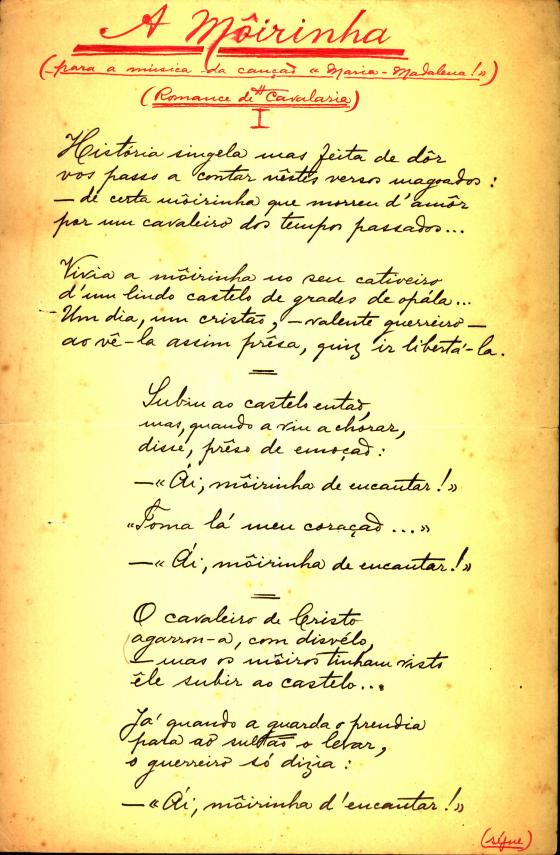 A Môirinha
(-para a musica da canção «Maria-Madalena!»)
(Romance de Cavalaria)
I
História singela mas feita de dôr
vos passo a contar nêstes versos magoados:
— de certa môirinha que morreu d'amôr
por um cavaleiro dos tempos passados...
Vivia a môirinha no seu cativeiro
d'um lindo castelo de grades de opála...
Um dia, um cristão, — valente guerreiro —
ao vê-la assim prêsa, quiz ir libertá-la.
Subiu ao castelo então,
mas, quando a viu a chorar,
disse, prêso de emoção:
—«Ái, môirinha de encantar!»
«Toma lá meu coração...»
—«Ái, môirinha de encantar!»
O cavaleiro de Cristo
agarrou-a, com disvélo,
— mas os môiros tinham visto
êle subir ao castelo...
Já quando a guarda o prendia
para ao sultão o levar,
o guerreiro só dizia:
—«Ái, môirinha d'encantar!»
(ségue)